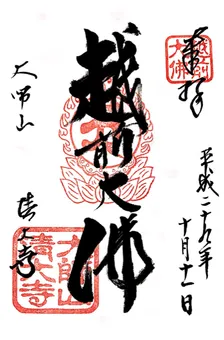 越前
大佛
奉拝
平成二十九年
十月十一日
越前大佛
大師山
清大寺
大師山
清大寺